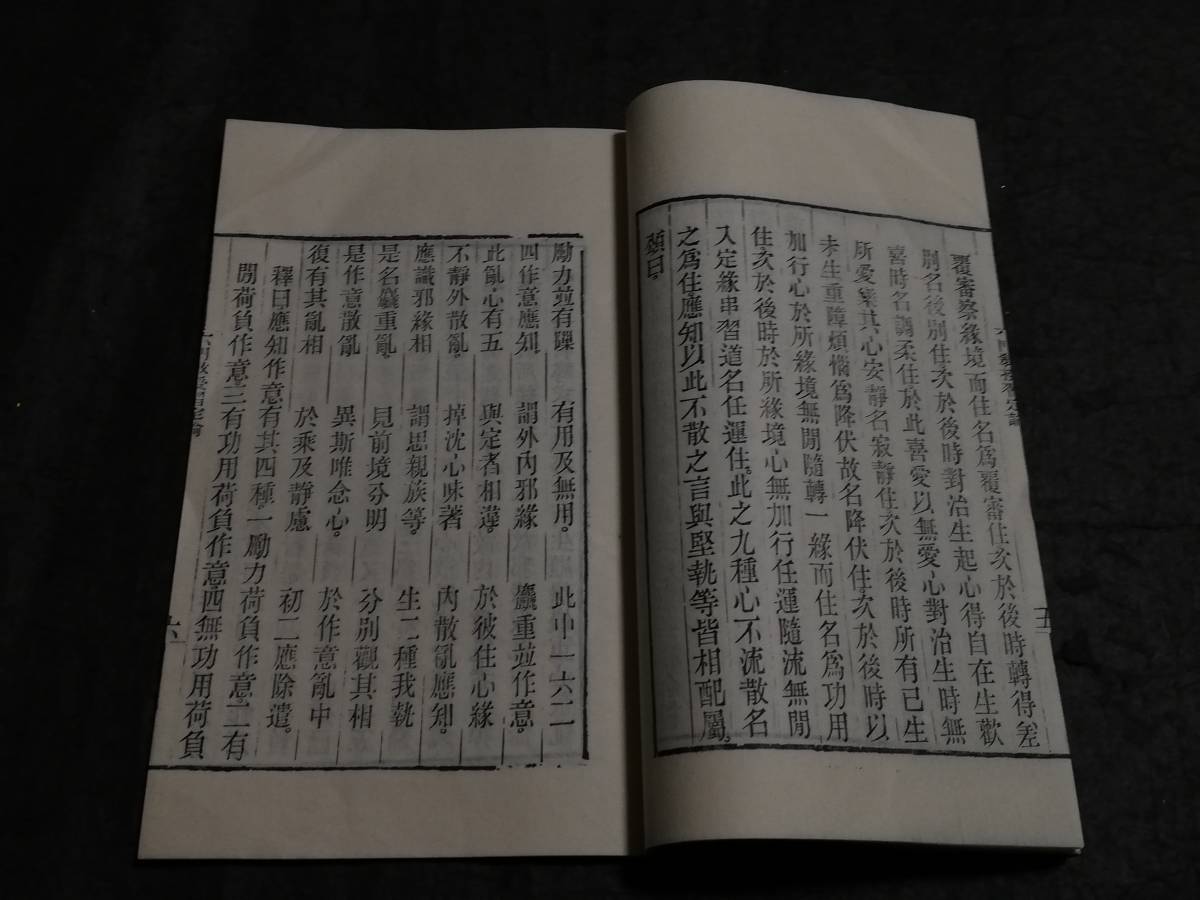 覆審察緣境而住名爲覆審住次於後時轉得差
別名後別住次於後時對治生起心得自在生歡
喜時名調柔住於此喜愛以無愛心對治生時無
所愛樂其心安靜名寂靜住次於後時所有已生
未生重障煩惱爲降伏故名降伏住次於後時以
加行心於所緣境無閒隨轉一緣而住名爲功用
住次於後時於所緣境心無加行任運隨流無閒
入定緣串習道名任運住此之九種心不流散名
之爲住應知以此不散之言與堅執等皆相配屬
頌曰
五
勵力竝有隟 有用及無用 此中一六二
四作意應知 謂外內邪緣 麤重竝作意
此亂心有五 與定者相違 於彼住心緣
不靜外散亂 掉沈心味著 內散亂應知
應識邪緣相 謂思親族等 生二種我執
是名麤重亂 見前境分明 分別觀其相
是作意散亂 異斯唯念心 於作意亂中
復有其亂相 於乘及靜慮 初二應除遣
釋曰應知作意有其四種一勵力荷負作意二有
閒荷負作意三有功用荷負作意四無功用荷負
六門教授習定論
六